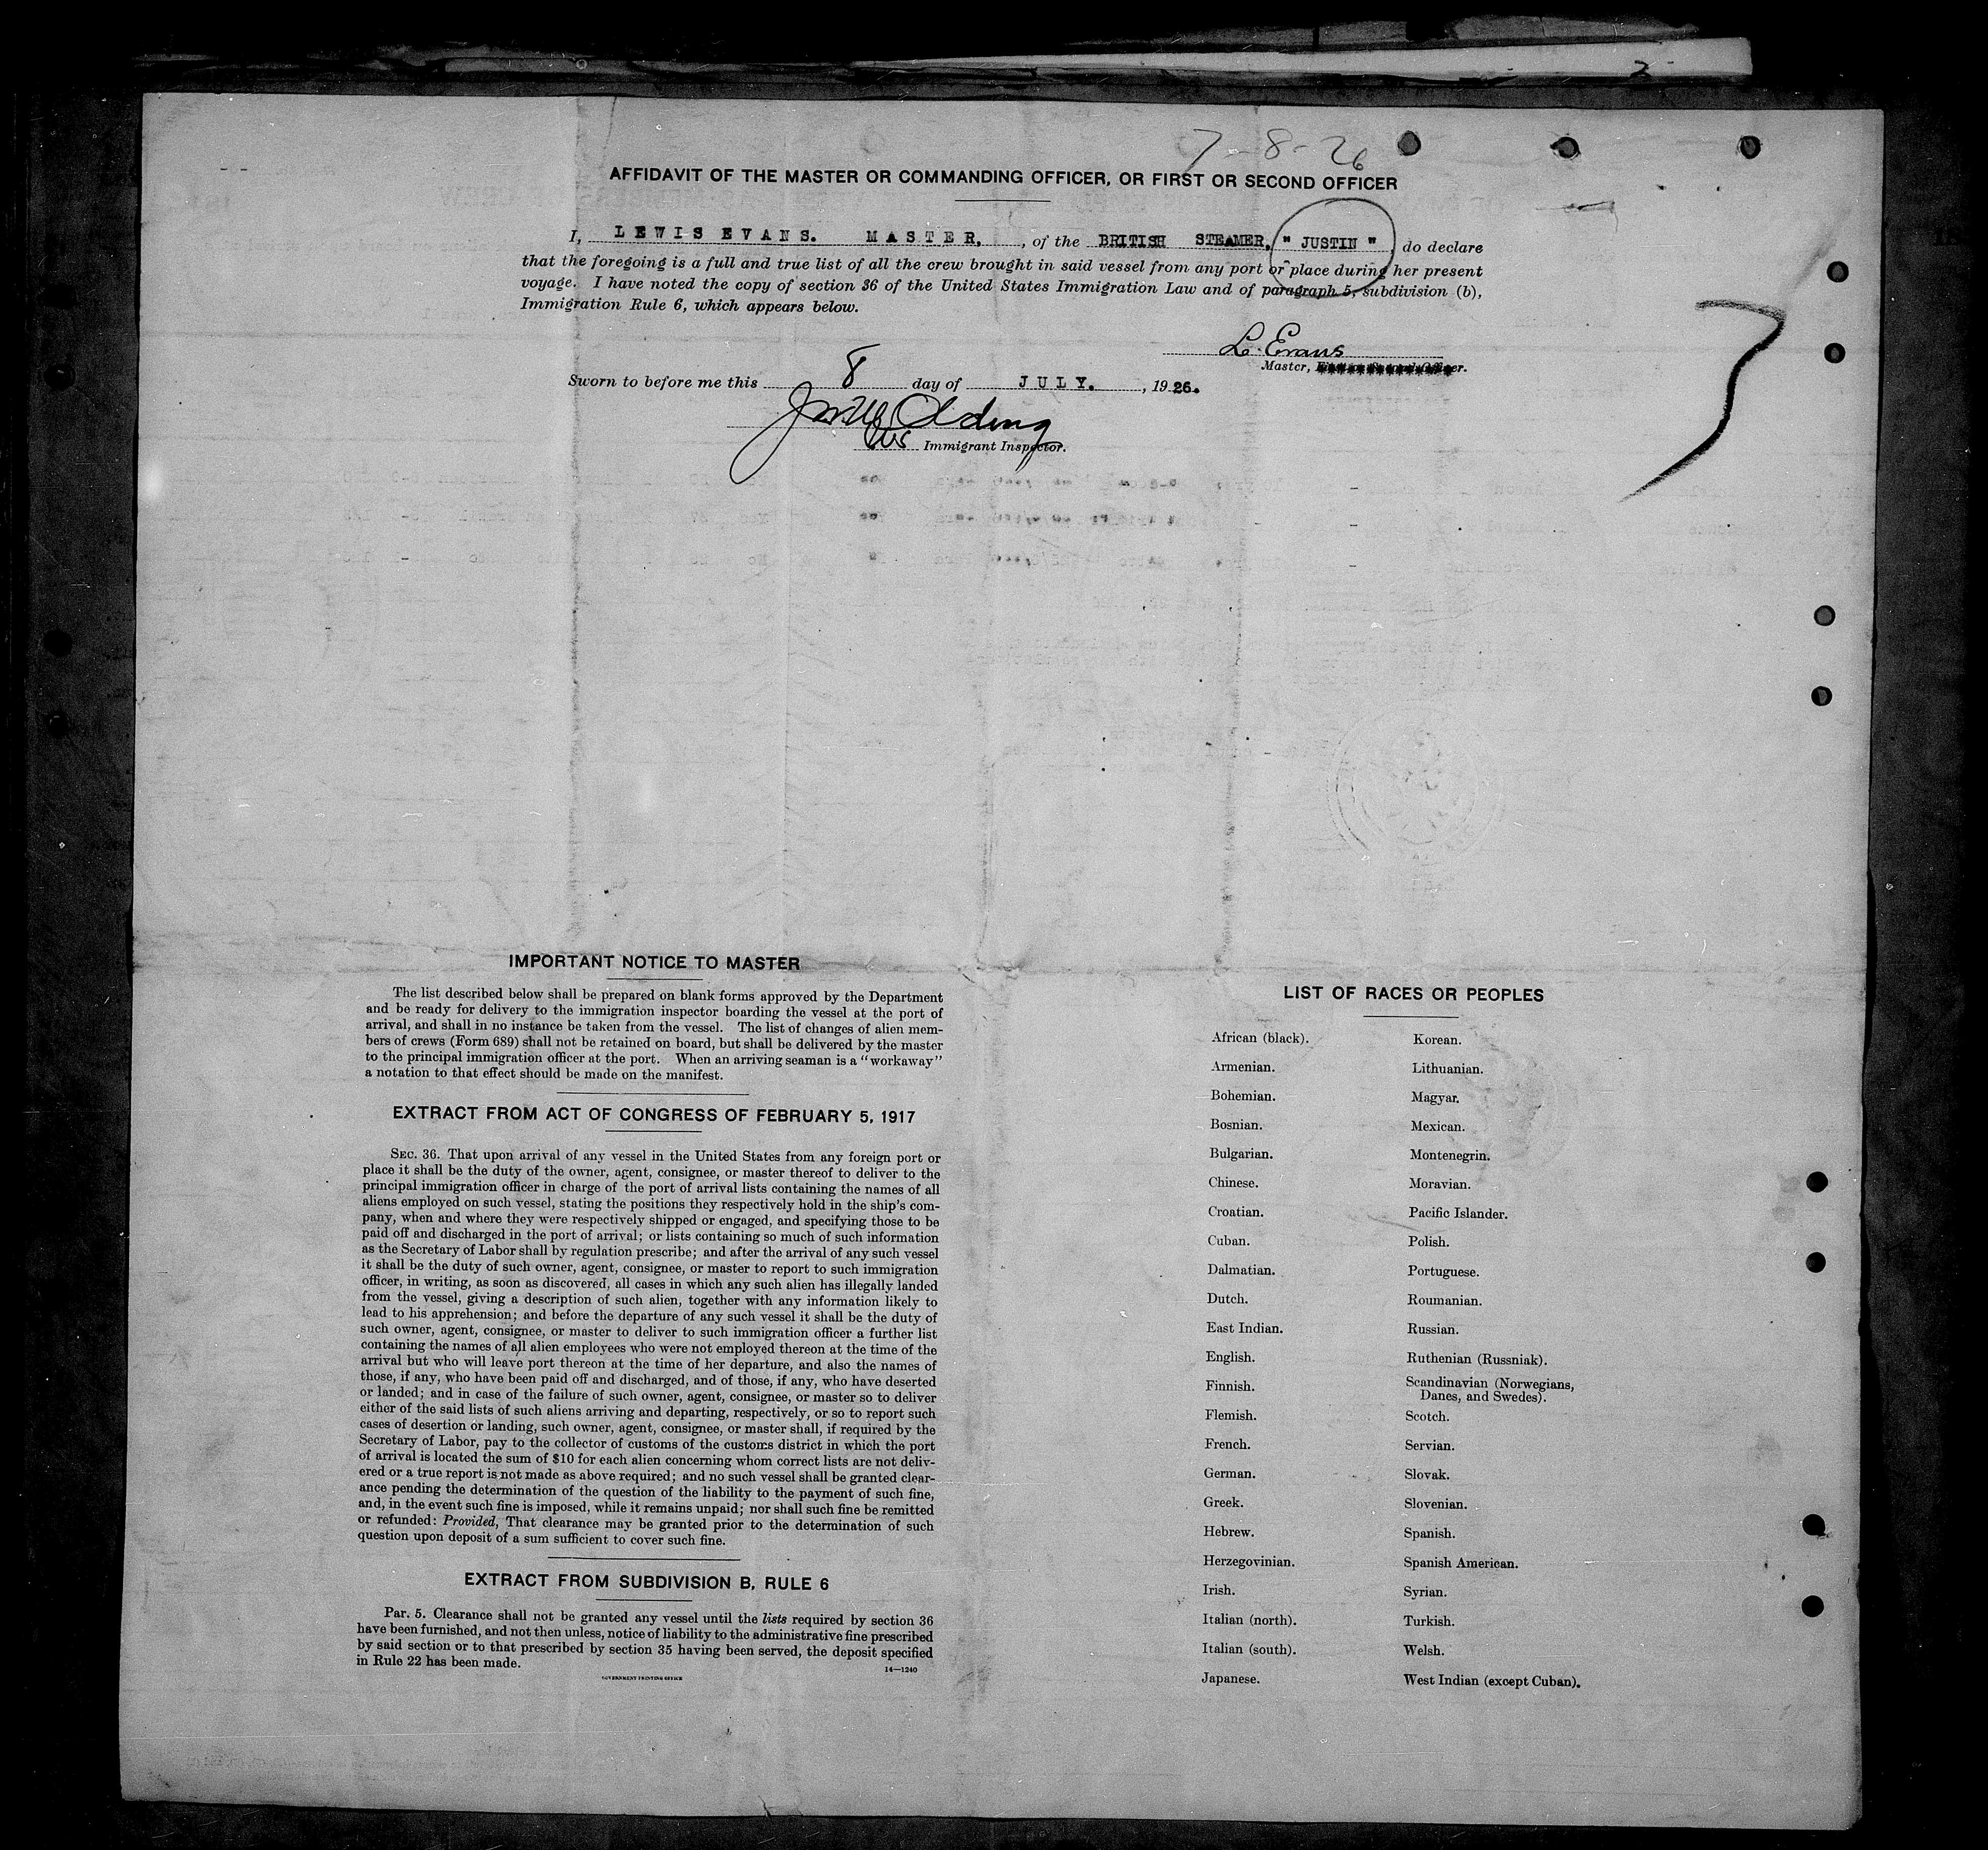 2
7-8-26
AFFIDAVIT OF THE MASTER OR COMMANDING OFFICER, OR FIRST OR SECOND OFFICER
I, LEWIS EVANS. MASTER, of the BRITISH STEAMER, " JUSTIN " do declare
that the foregoing is a full and true list of all the crew brought in said vessel from any port or place during her present
voyage. I have noted the copy of section 36 of the United States Immigration Law and of paragraph 5, subdivision (b),
Immigration Rule 6, which appears below.
L. Evans
Master,
Sworn to before me this 8 day of JULY. , 1926.
Immigrant Inspector.
IMPORTANT NOTICE TO MASTER
The list described below shall be prepared on blank forms approved by the Department
and be ready for delivery to the immigration inspector boarding the vessel at the port of
arrival, and shall in no instance be taken from the vessel. The list of changes of alien mem-
bers of crews (Form 689) shall not be retained on board, but shall be delivered by the master
to the principal immigration officer at the port. When an arriving seaman is a "workaway"
a notation to that effect should be made on the manifest.
EXTRACT FROM ACT OF CONGRESS OF FEBRUARY 5, 1917
SEC. 36. That upon arrival of any vessel in the United States from any foreign port or
place it shall be the duty of the owner, agent, consignee, or master thereof to deliver to the
principal immigration officer in charge of the port of arrival lists containing the names of all
aliens employed on such vessel, stating the positions they respectively hold in the ship's com-
pany, when and where they were respectively shipped or engaged, and specifying those to be
paid off and discharged in the port of arrival; or lists containing so much of such information
as the Secretary of Labor shall by regulation prescribe; and after the arrival of any such vessel
it shall be the duty of such owner, agent, consignee, or master to report to such immigration
officer, in writing, as soon as discovered, all cases in which any such alien has illegally landed
from the vessel, giving a description of such alien, together with any information likely to
lead to his apprehension; and before the departure of any such vessel it shall be the duty of
such owner, agent, consignee, or master to deliver to such immigration officer a further list
containing the names of all alien employees who were not employed thereon at the time of the
arrival but who will leave port thereon at the time of her departure, and also the names of
those, if any, who have been paid off and discharged, and of those, if any, who have deserted
or landed; and in case of the failure of such owner, agent, consignee, or master so to deliver
either of the said lists of such aliens arriving and departing, respectively, or so to report such
cases of desertion or landing, such owner, agent, consignee, or master shall, if required by the
Secretary of Labor, pay to the collector of customs of the customs district in which the port
of arrival is located the sum of $10 for each alien concerning whom correct lists are not deliv-
ered or a true report is not made as above required; and no such vessel shall be granted clear-
ance pending the determination of the question of the liability to the payment of such fine,
and, in the event such fine is imposed, while it remains unpaid; nor shall such fine be remitted
or refunded: Provided, That clearance may be granted prior to the determination of such
question upon deposit of a sum sufficient to cover such fine.
EXTRACT FROM SUBDIVISION B, RULE 6
Par. 5. Clearance shall not be granted any vessel until the lists required by section 36
have been furnished, and not then unless, notice of liability to the administrative fine prescribed
by said section or to that prescribed by section 35 having been served, the deposit specified
in Rule 22 has been made.
14—1240
GOVERNMENT PRINTING OFFICE
LIST OF RACES OR PEOPLES
African (black). Korean.
Armenian. Lithuanian.
Bohemian. Magyar.
Bosnian. Mexican.
Bulgarian. Montenegrin.
Chinese. Moravian.
Croatian. Pacific Islander.
Cuban. Polish.
Dalmatian. Portuguese.
Dutch. Roumanian.
East Indian. Russian.
English. Ruthenian (Russniak).
Finnish. Scandinavian (Norwegians,
Danes, and Swedes).
Flemish. Scotch.
French. Servian.
German. Slovak.
Greek. Slovenian.
Hebrew. Spanish.
Herzegovinian. Spanish American.
Irish. Syrian.
Italian (north). Turkish.
Italian (south). Welsh.
Japanese. West Indian (except Cuban).